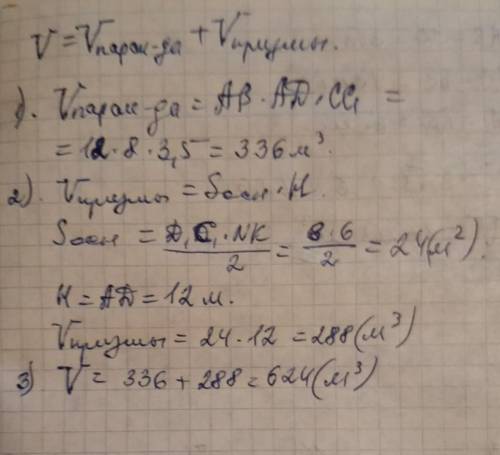 V = Vпарал-да + Vпризмы.
1). Vпарал-да = AB · AD · CC₁ =
= 12 · 8 · 3,5 = 336 м³.
2). Vпризмы = Sосн · H.
Sосн = D₁C₁ · NK / 2 = 8 · 6 / 2 = 24 (м²).
H = AD = 12 м.
Vпризмы = 24 · 12 = 288 (м³)
3) V = 336 + 288 = 624 (м³)